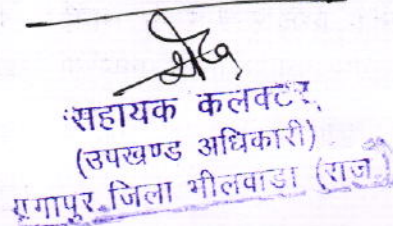 सहायक कलक्टर,
(उपखण्ड अधिकारी)
गंगापुर जिला भीलवाडा (राज.)